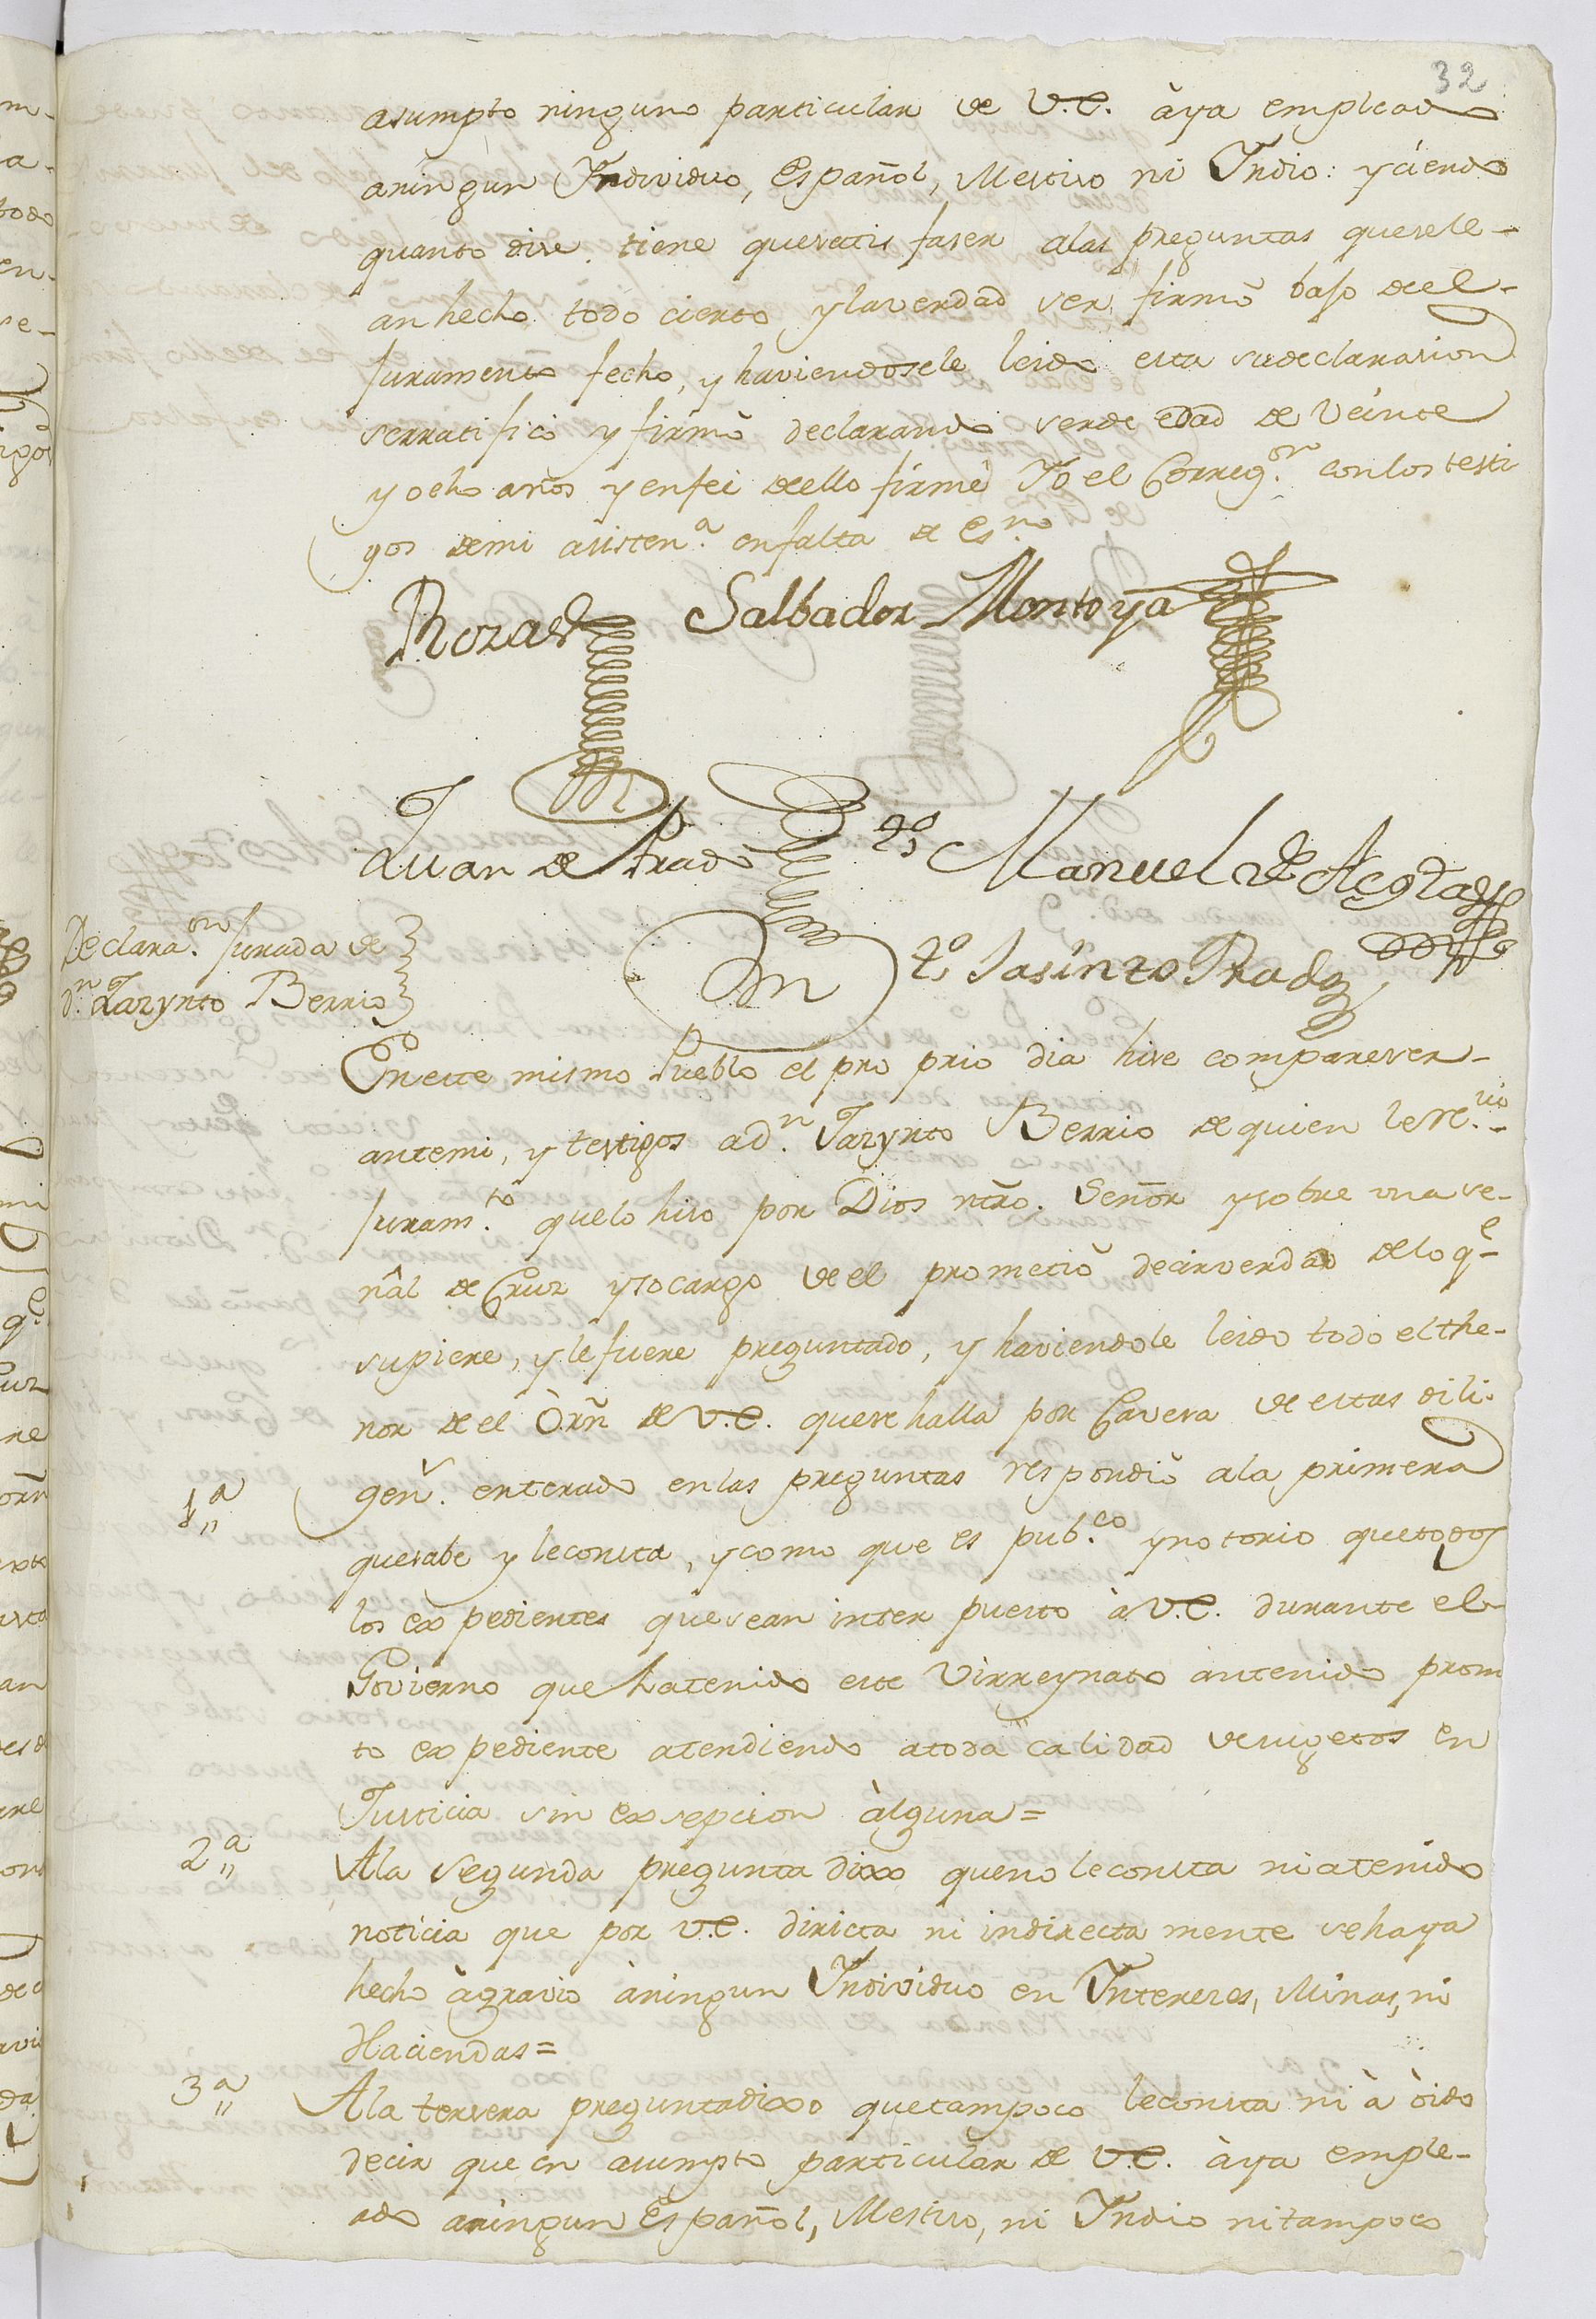 32
asumpto ninguno particular de V.E. àya empleado
aningun Individuo, Español, Mestiso ni Indio: y ciendo
quanto dise tiene quesatis faser alas preguntas quesele-
an hecho todo cierto, y laverdad ser, firmò bajo deel-
Juramento fecho, y haviendosele leido esta sudeclarasion
serratificò y firmò declarando serde edad de Veinte
y ocho años y enfeè deello firmè Yo el Correg.or conlos testi
gos demi asisten.a enfalta de Es.no
Rozas Salbador Montoya
Juan de Prado t.go Manuel de Acosta
t.o Jasinto Prado
Declara.on Jurada de
d.n Jazynto Berrio
Eneste mismo Pueblo el pro prio dia hise compareser-
antemi, y testigos ad.n Jazynto Berrio dequien leRe.vió-
Juram.to quelo hiso por Dios ntro. Señor ysobre una se-
ñàl de Cruz ysocargo deel prometiò decirverdad deloq.e-
supiere, y lefuere preguntado, y haviendole leido todo elthe-
nor deel Òrñ de V.E. quesehalla por Cavesa de estas dili-
gen.s enterado enlas preguntas respondiò ala primera
1.a
quesabe y leconsta, y como que es pub.co ynotorio quetodos
los expedientes quesean inter puesto à V.E. durante el-
Govierno que hatenido este Virreynato antenido prom
to expediente atendiendo atoda calidad desugetos en
Justicia sin exsepcion àlguna=
2.a
Ala segunda pregunta dixo queno leconsta niatenido
noticia que por V.E. diricta ni indirecta mente sehaya
hecho àgravio àningun Individuo en Intereses, Minas, ni
Haciendas=
3.a
Ala tersera preguntadixo quetampoco leconsta ni à òido
decir que en asumpto particular de V.E. àya emple-
ado aningun Español, Mestiso, ni Indio nitampoco